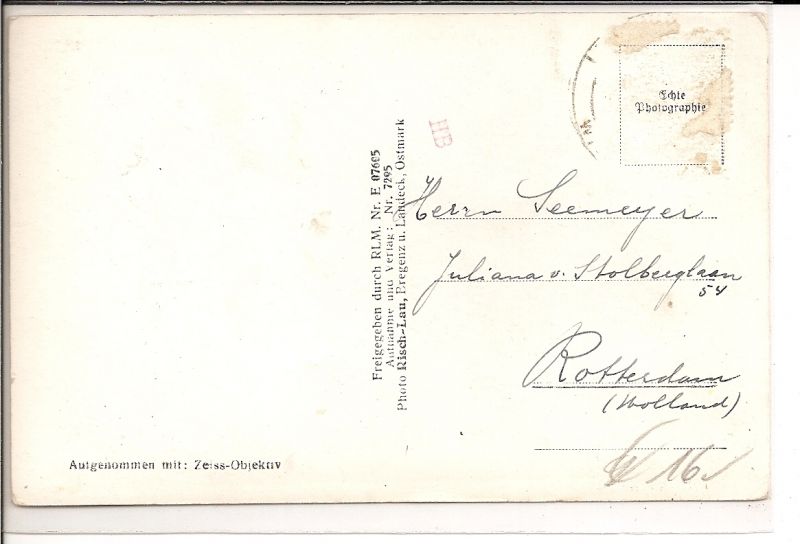 Echte
Photographie
HB
Freigegeben durch RLM. Nr. E 07605
Aufnahme und Verlag: Nr. 7295
Photo Risch-Lau, Bregenz u. Landeck, Ostmark
Herrn Seemeyer
Juliana v. Stolberglaan
54
Rotterdam
(Holland)
16
Aufgenommen mit: Zeiss-Objektiv